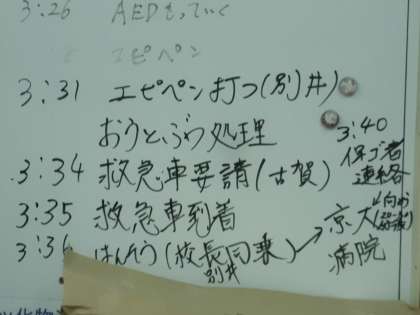 3:26 AEDもっていく
エピペン
3:31 エピペン打つ(別井)
おうとぶつ処理
3:34 救急車要請(古賀)
3:35 救急車到着
3:36 はんそう(校長同乗)→京大病院
別井
3:40
保ゴ者
連絡